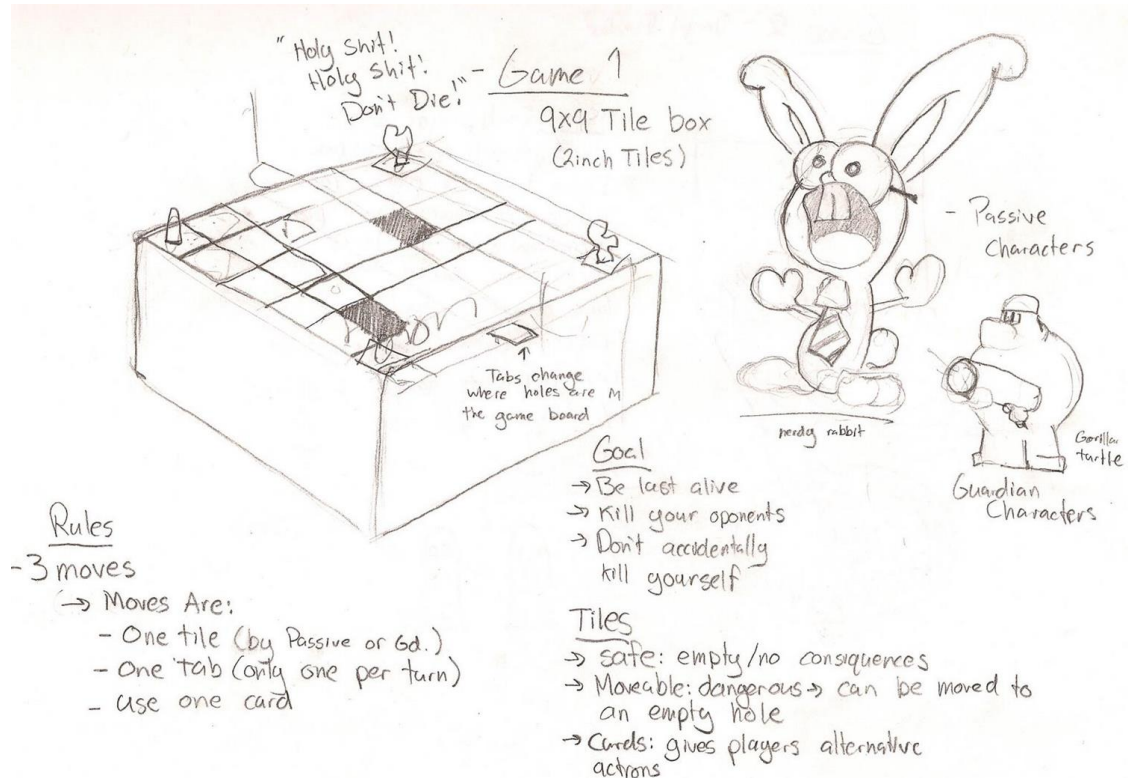 "Holy Shit!
Holy Shit!
Don't Die!" - Game 1
9x9 Tile box
(2inch Tiles)
- Passive
Characters
Tabs change
where holes are in
the game board
nerdy rabbit
Gorilla
turtle
Guardian
Characters
Goal
→ Be last alive
→ Kill your oponents
→ Don't accidentally
kill yourself
Rules
- 3 moves
→ Moves Are:
- One tile (by Passive or Gd.)
- One tab (only one per turn)
- use one card
Tiles
→ safe: empty/no consiquences
→ Moveable: dangerous → can be moved to
an empty hole
→ Cards: gives players alternative
actions